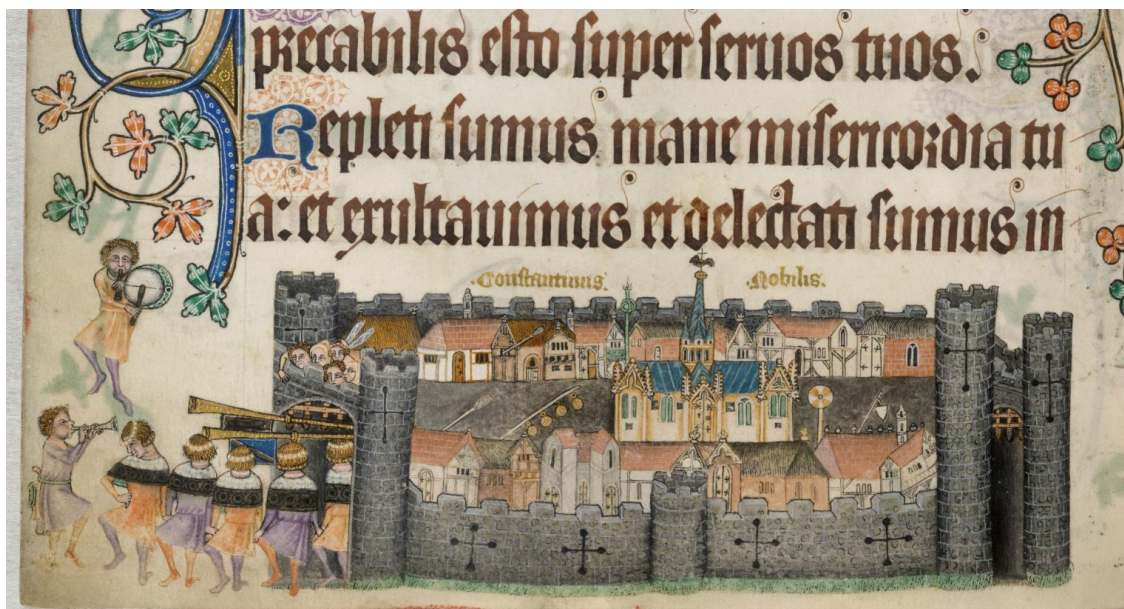 precabilis esto super seruos tuos.
Repleti sumus mane misericordia tu
a: et exultauimus et delectati sumus in
.Constantinus. .Nobilis.